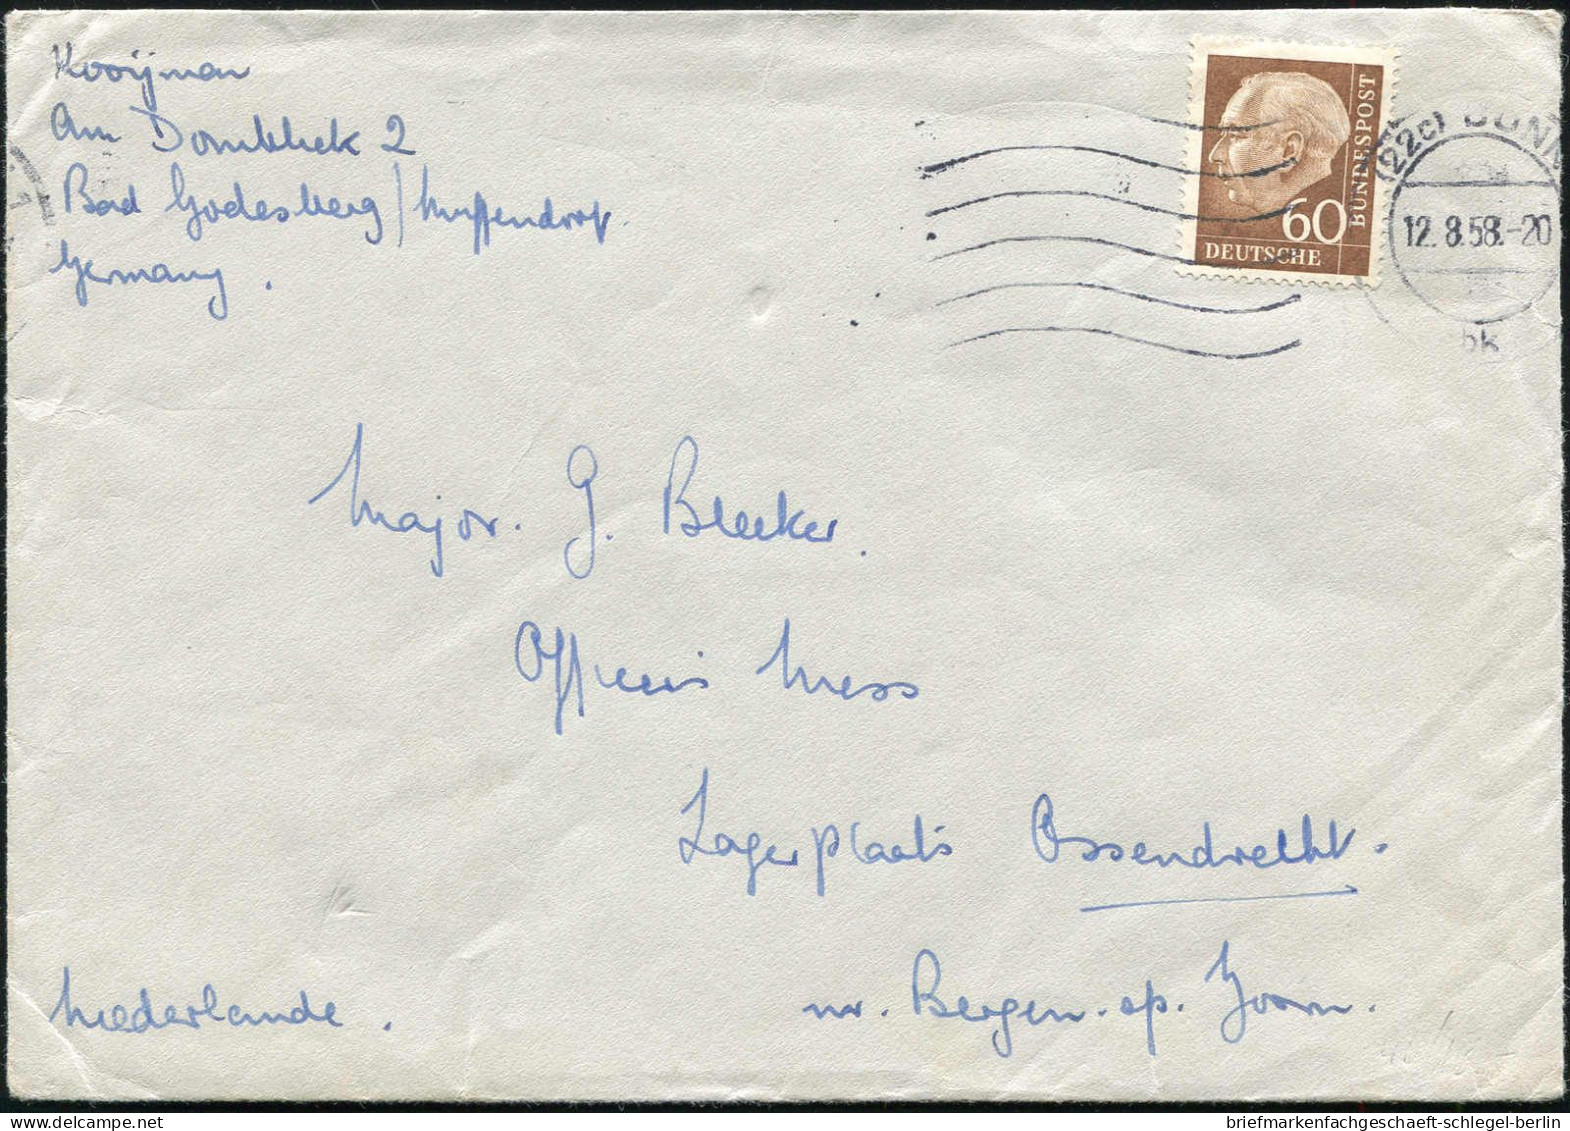 Kooijman
Am Domblick 2
Bad Godesberg / Muffendorf.
Germany.
60
DEUTSCHE
BUNDESPOST
(22c) BONN
12.8.58.-20
bk
Major. G. Bleeker.
Officers Mess
Lagerplaats Ossendrecht.
nr. Bergen. op. Zoom.
Niederlande.
briefmarkenfachgeschaeft-schlegel-berlin